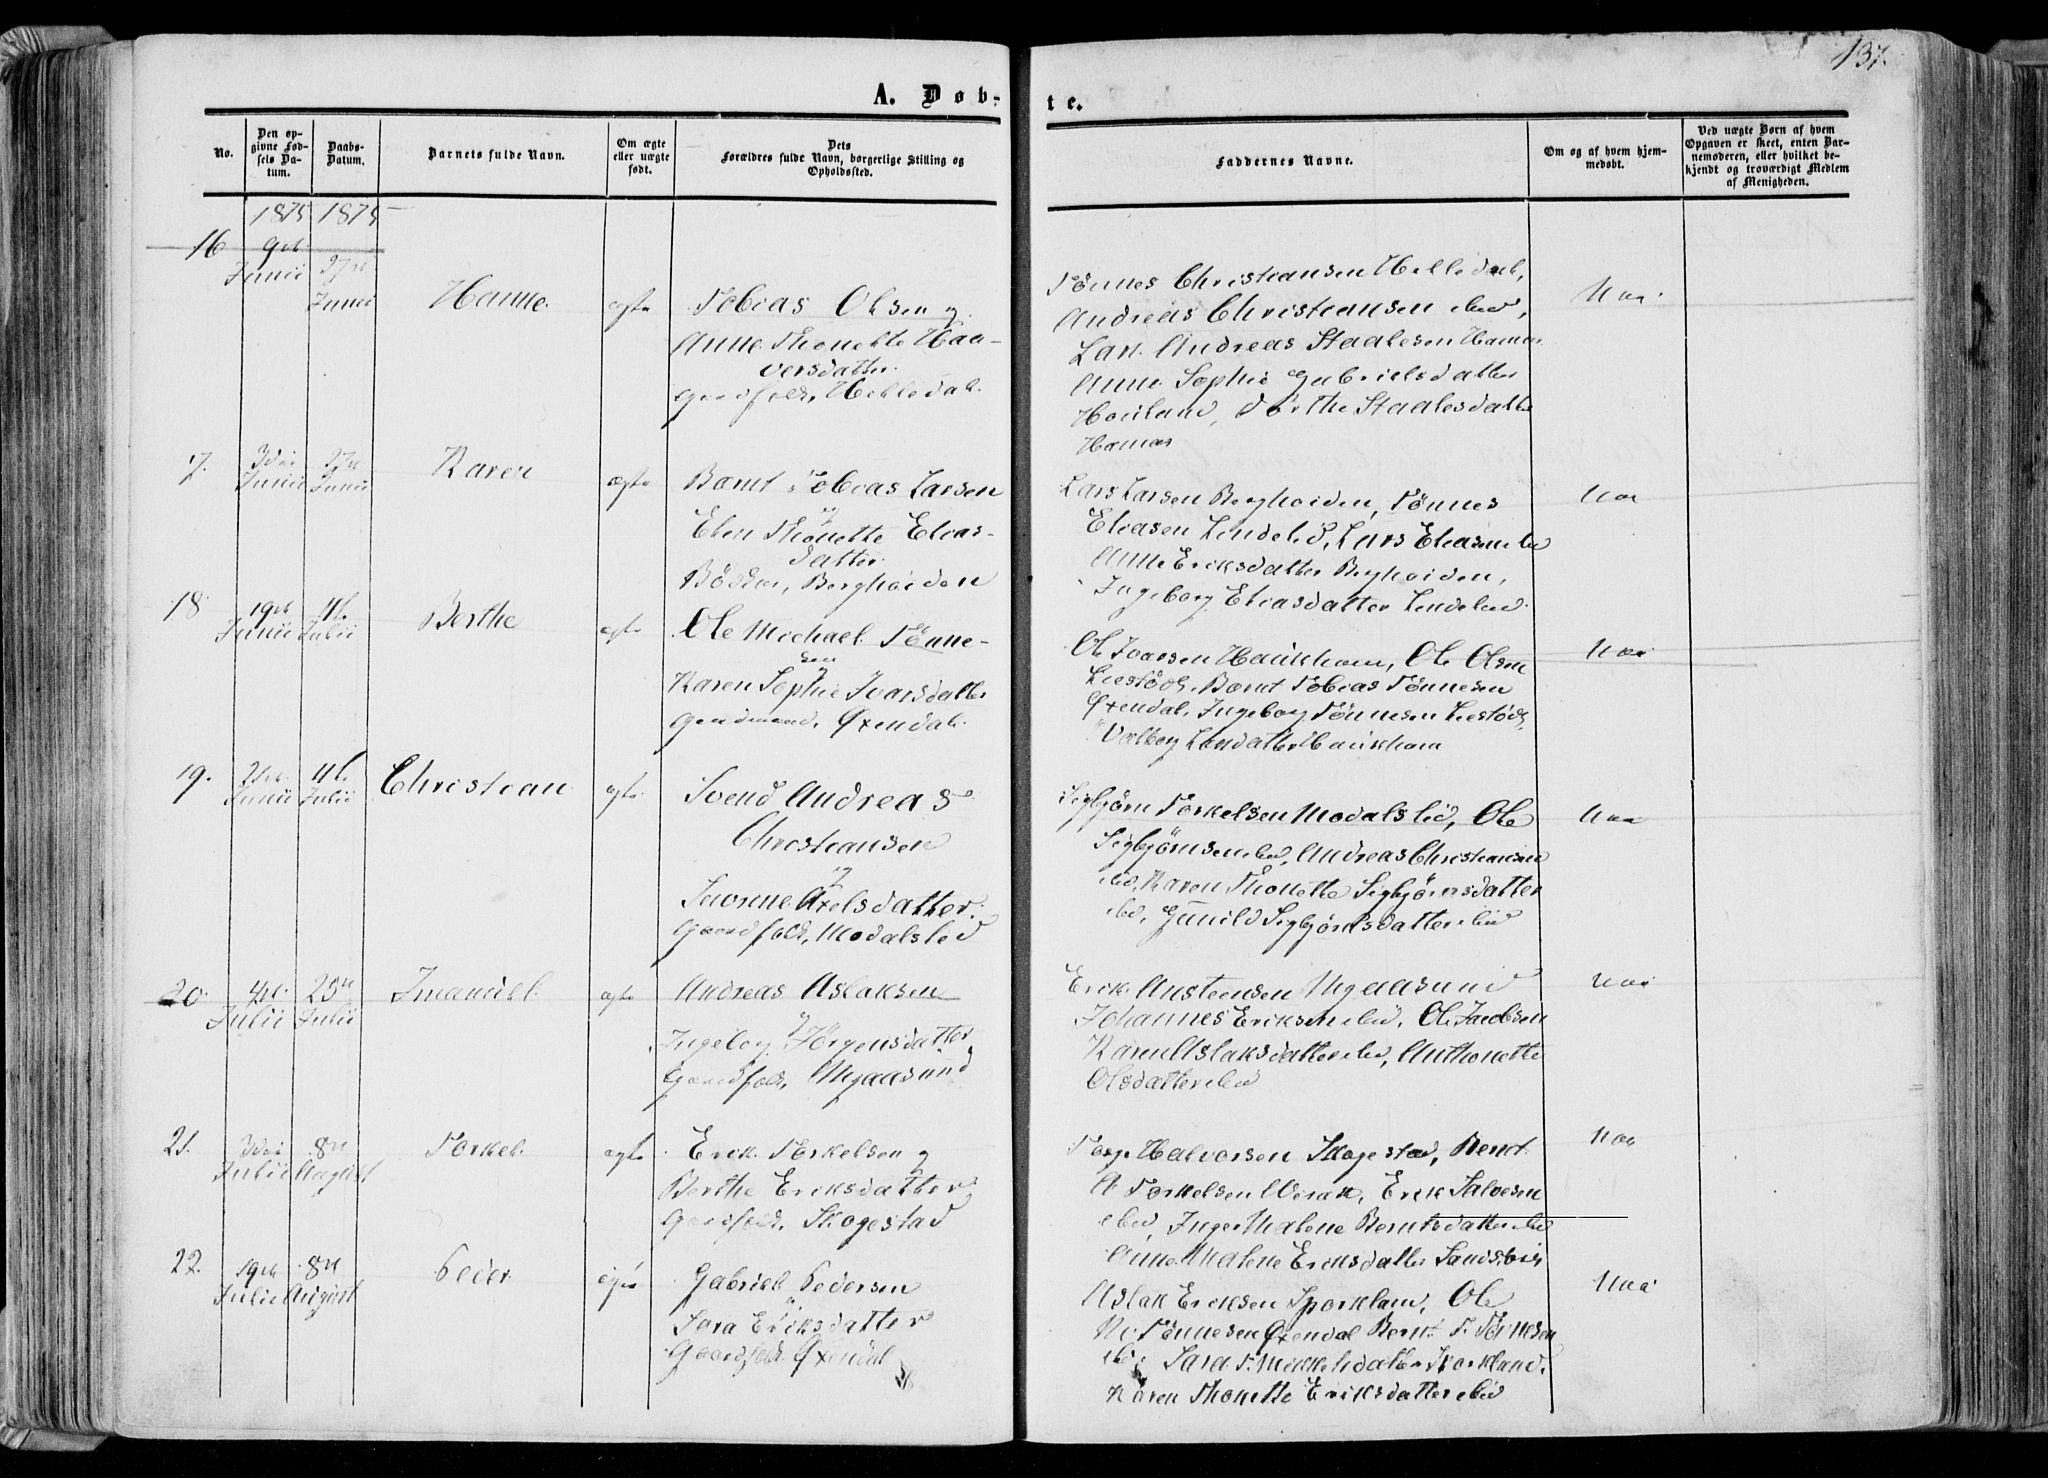 137.
A. Døb-
te.
No.
Den op-
givne Fød-
sels Da-
tum.
Daabs-
Datum.
Barnets fulde Navn.
Om ægte
eller uægte
født.
Dets
Forældres fulde Navn, borgerlige Stilling og
Opholdssted.
Faddernes Navne.
Om og af hvem hjem-
medøbt.
Ved uægte Børn af hvem
Opgaven er skeet, enten Bar-
nemoderen, eller hvilket be-
kjendt og troværdigt Medlem
af Menigheden.
1875 1875
16
9de
Junii
27de
Junii
Hanne
ægte
Tobias Olsen og
Anne Thonette Haa-
versdatter
Gaardfolk, Helledal.
Tönnes Christiansen Helledal,
Andreas Christiansen ibid,
Lars Andreas Staalesen Hamar
Anne Sophie Gabrielsdatter
Houland, Dorthe Staalesdatter
Hamar
Nei
7.
3die
Junii
27de
Junii
Karen
ægte
Bernt Tobias Larsen
og
Elen Thonette Elias-
datter
Bödker, Bergheiden
Lars Larsen Bergheiden, Tönnes
Eliasen Lindelid, Lars Eliasen ibid
Anne Eriksdatter Bergheiden,
Ingeborg Eliasdatter Lindelid.
Nei
18
19de
Junii
11te
Julii
Berthe
ægte
Ole Michael Tönne-
sen
Karen Sophie Ivarsdatter
Gaardmand, Øxendal.
Ole Ivarsen Haukhom, Ole Olsen
Liestöl, Bernt Tobias Tönnesen
Øxendal, Ingeborg Tönnesen Liestöl,
Valborg Larsdatter Haukhom
Nei
19.
21de
Junii
11te
Julii
Christian
ægte
Svend Andreas
Christiansen
og
Serine Axelsdatter
Gaardfolk, Modalslid
Sigbjörn Torkelsen Modalslid, Ole
Sigbjörnsen ibid, Andreas Christiansen
ibid, Karen Thonette Sigbjörnsdatter
ibid, Gunild Sigbjörnsdatter ibid
Nei
20.
4de
Julii
25de
Julii
Imanuel
ægte
Andreas Aslaksen
og
Ingeborg Jörgensdatter
Gaardfolk, Mgaasund
Erik Anstensen Mgaasund
Johannes Eriksen ibid, Ole Jacobsen
Karen Aslaksdatter ibid, Anthonette
Olsdatter ibid
Nei
21.
3die
Julii
8de
August
Torkel.
ægte
Erik Torkelsen og
Berthe Eriksdatter
Gaardfolk, Skogestad
Terje Halvorsen Skogestad, Bernt
A Torkelsen Verak, Erik Salvesen
ibid, Inger Malene Berntsdatter ibid
Anne Malene Eriksdatter
Nei
22.
19de
Julii
8de
August
Peder
ægte
Gabriel Pedersen
Sara Eriksdatter
Gaardfolk Øxendal
Aslak Eriksen Sporkland, Ole
M. Tönnesen Øxendal Bernt T. Tönnesen
ibid, Sara T. Mikkelsdatter Sporkland,
Karen Thonette Eriksdatter ibid
Nei